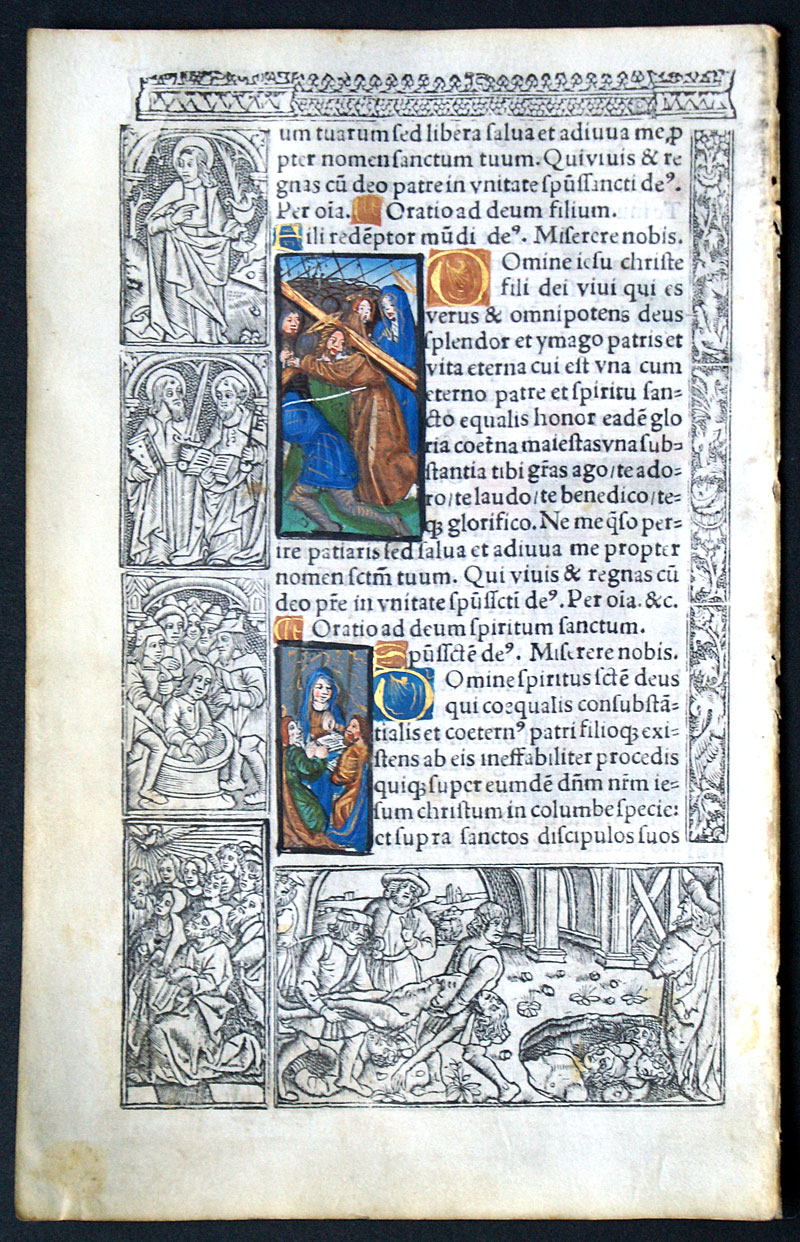 um tuarum sed libera salua et adiuua me, p
pter nomen sanctum tuum. Qui viuis & re
gnas cū deo patre in vnitate spūssancti deꝰ.
Per oīa. Oratio ad deum filium.
Fili redēptor mūdi deꝰ. Miserere nobis.
Domine iesu christe
fili dei viui qui es
verus & omnipotens deus
splendor et ymago patris et
vita eterna cui est vna cum
eterno patre et spiritu san=
cto equalis honor eadē glo
ria coet̄na maiestas vna sub=
stantia tibi gr̄as ago/te ado=
ro/te laudo/te benedico/te=
qꝫ glorifico. Ne me q̄so per=
ire patiaris sed salua et adiuua me propter
nomen sctm̄ tuum. Qui viuis & regnas cū
deo pr̄e in vnitate spūssc̄ti deꝰ. Per oīa. &c.
Oratio ad deum spiritum sanctum.
Spūsscte̅ deꝰ. Miserere nobis.
Domine spiritus sctē deus
qui coequalis consubstā=
tialis et coeternꝰ patri filioqꝫ exi=
stens ab eis ineffabiliter procedis
quiqꝫ super eumdē dn̄m nr̄m ie=
sum christum in columbe specie:
et supra sanctos discipulos suos